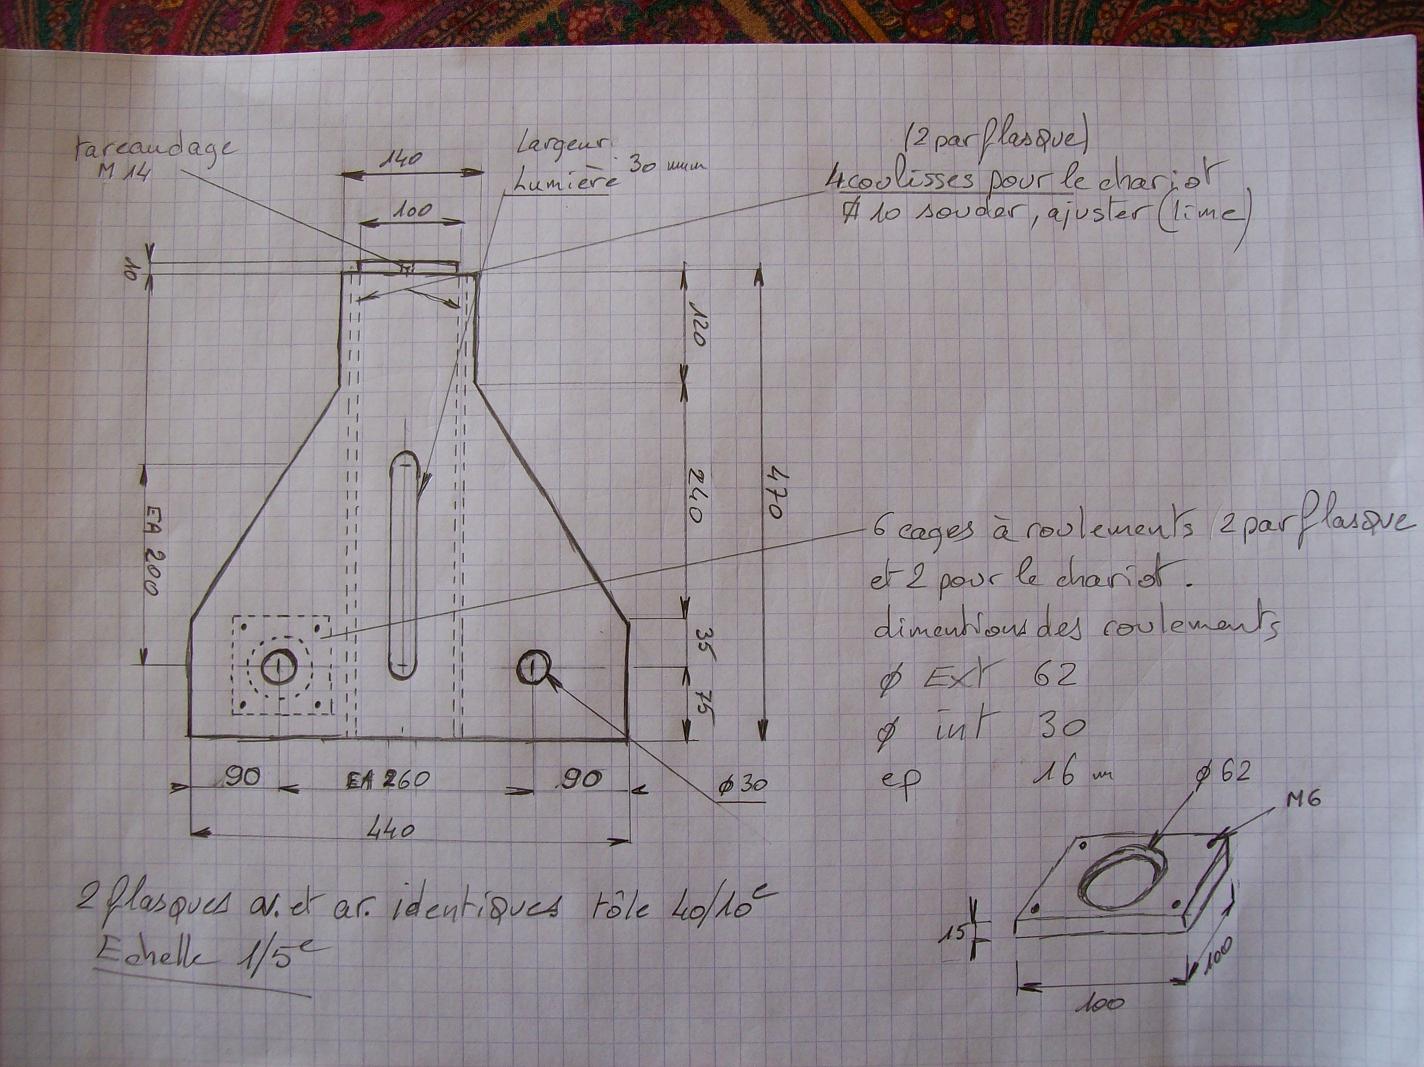 tareaudage
M 14
Largeur
Lumière 30 mm
140
100
10
(2 par flasque)
4 coulisses pour le chariot
φ 10 souder, ajuster (lime)
120
240
470
35
75
EA 200
6 cages à roulements (2 par flasque
et 2 pour le chariot.
dimentions des roulements
φ Ext 62
φ int 30
ep 16 m
90
EA 260
90
φ 30
440
φ 62
M6
15
100
100
2 flasques av. et ar. identiques tôle 40/10e
Echelle 1/5e